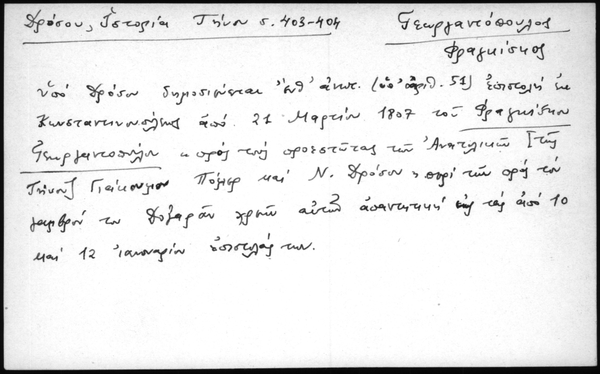 Δρόσου, Ἱστορία Τήνου σ. 403-404
Γεωργαντόπουλος
Φραγκίσκος
ὑπό Δρόσου δημοσιεύεται ἔνθ' ἀνωτ. (ὑπ' ἀριθ. 51) ἐπιστολή ἐκ
Κωνσταντινουπόλεως ἀπό 21 Μαρτίου 1807 τοῦ Φραγκίσκου
Γεωργαντοπούλου πρός τούς προεστῶτας τῶν Ἀνατολικῶν [τῆς
Τήνου] Γιάκουμον καί Ν. Δρόσον περί τῶν πρός τόν
γαμβρόν του χρεῶν αὐτῶν ἀπαντητική εἰς τάς ἀπό 10
καί 12 ἰανουαρίου ἐπιστολάς των.